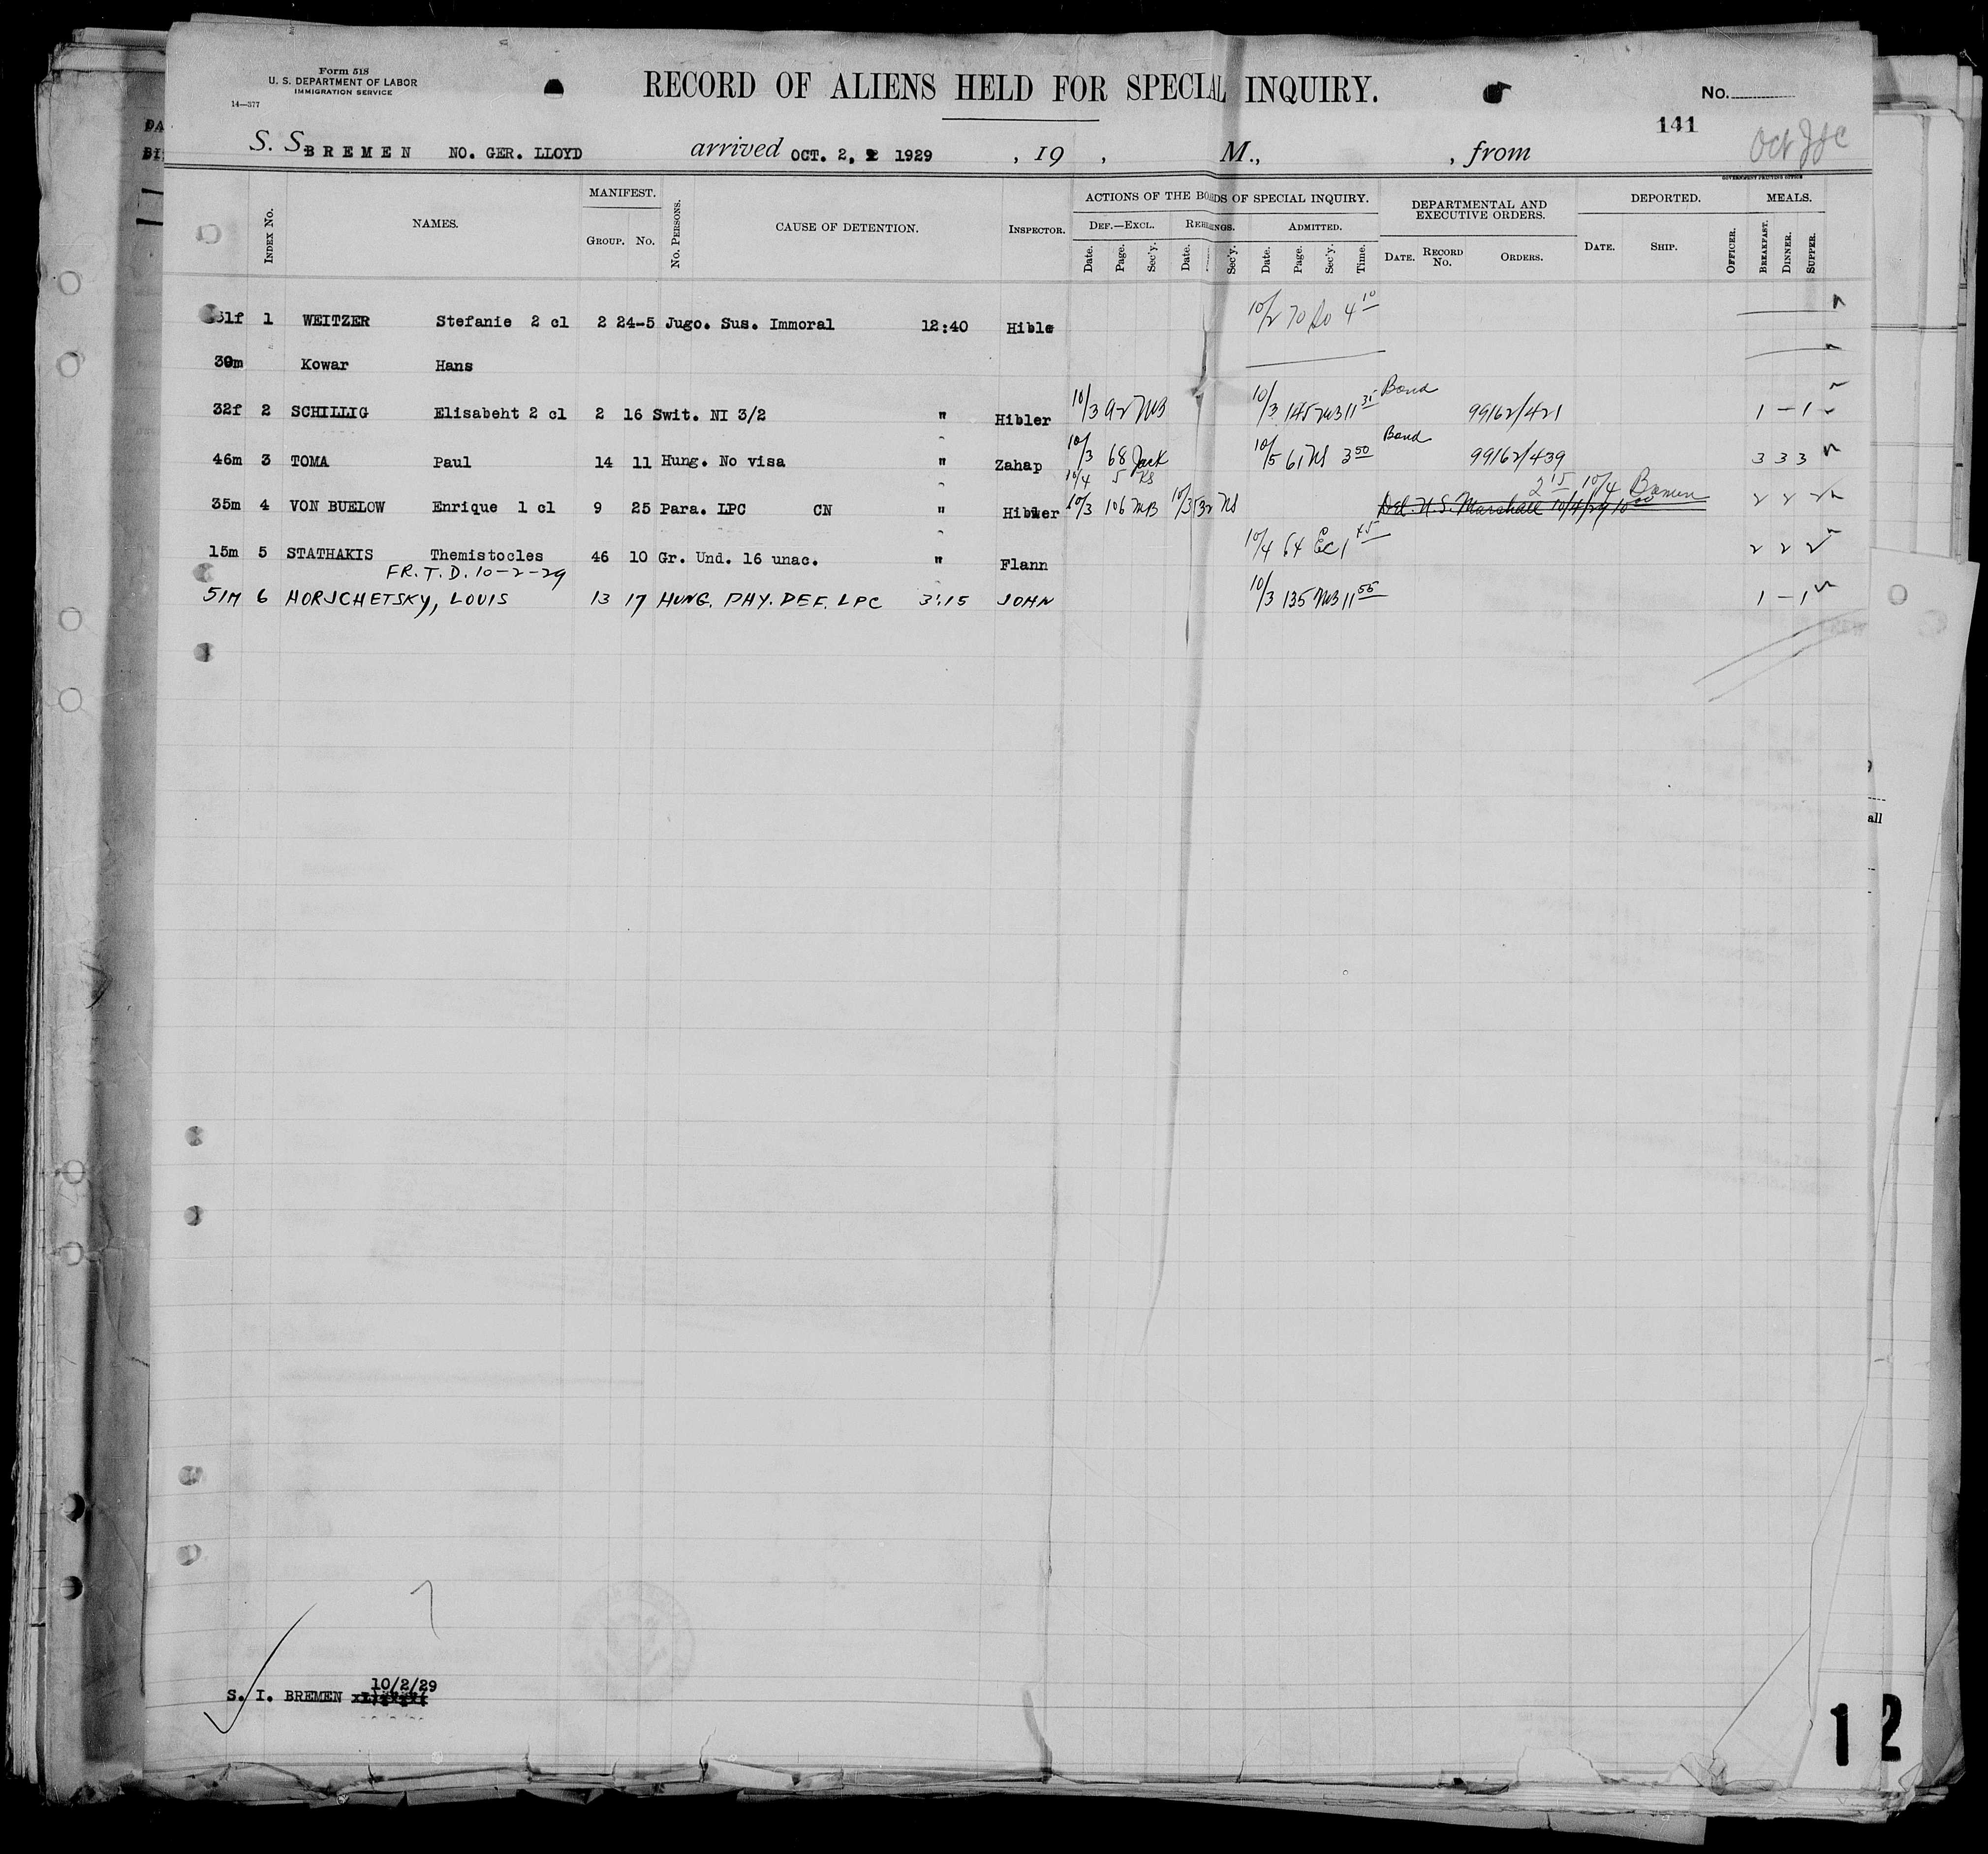 Form 518
U. S. DEPARTMENT OF LABOR
IMMIGRATION SERVICE
14—377
RECORD OF ALIENS HELD FOR SPECIAL INQUIRY.
No.
141
S. S. BREMEN NO. GER. LLOYD arrived OCT. 2, 1929 , 19 , M., , from
Oct
GOVERNMENT PRINTING OFFICE
INDEX No. NAMES. MANIFEST. GROUP. No. No. PERSONS. CAUSE OF DETENTION. INSPECTOR. ACTIONS OF THE BOARDS OF SPECIAL INQUIRY. DEPARTMENTAL AND EXECUTIVE ORDERS. DEPORTED. MEALS.
DEF.—EXCL. REHEARINGS. ADMITTED.
Date. Page. Sec'y. Date. Sec'y. Date. Page. Sec'y. Time. DATE. RECORD No. ORDERS. DATE. SHIP. OFFICER. BREAKFAST. DINNER. SUPPER.
51f 1 WEITZER Stefanie 2 cl 2 24-5 Jugo. Sus. Immoral 12:40 Hible 10/2 70 4 10
30m Kowar Hans
32f 2 SCHILLIG Elisabeht 2 cl 2 16 Swit. NI 3/2 " Hibler 10/3 92 MB 10/3 145 MB 11 35 Bond 99162/421 1 - 1
46m 3 TOMA Paul 14 11 Hung. No visa " Zahap 10/3 68 Jack 10/5 61 NS 3 50 Bond 99162/439 3 3 3
10/4 5 KS
2 15 10/4 Bremen
35m 4 VON BUELOW Enrique 1 cl 9 25 Para. LPC CN " Hibler 10/3 106 MB 10/3 132 NS Del. U.S. Marshall 10/4/29 10 00 2 2 2
15m 5 STATHAKIS Themistocles 46 10 Gr. Und. 16 unac. " Flann 10/4 64 EC 1 45 2 2 2
FR. T. D. 10-2-29
51M 6 HORSCHETSKY, LOUIS 13 17 HUNG. PHY. DEF. LPC 3:15 JOHN 10/3 135 MB 11 55 1 - 1
all
10/2/29
S. I. BREMEN
1 2